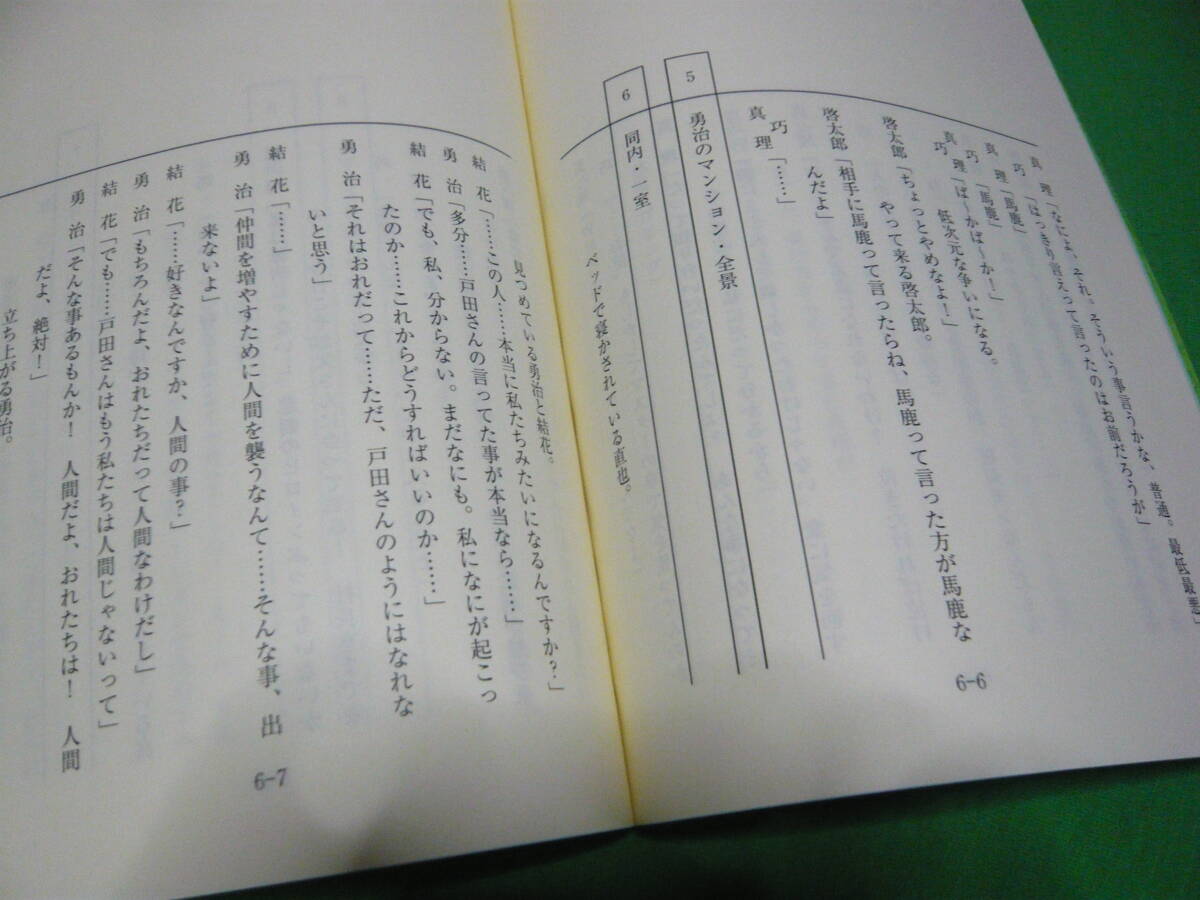 真　理「なによ、それ。そういう事言うかな、普通。最低最悪」
巧「はっきり言えって言ったのはお前だろうが」
真　理「馬鹿」
巧「馬鹿」
真　理「ばーかばーか！」
低次元な争いになる。
啓太郎「ちょっとやめなよ！」
やって来る啓太郎。
啓太郎「相手に馬鹿って言ったらね、馬鹿って言った方が馬鹿な
んだよ」
巧
真　理「……」
5　勇治のマンション・全景
6　同内・一室
ベッドで寝かされている直也。
6-6
見つめている勇治と結花。
結　花「……この人……本当に私たちみたいになるんですか？」
勇　治「多分……戸田さんの言ってた事が本当なら……」
結　花「でも、私、分からない。まだなにも。私になにが起こっ
たのか……これからどうすればいいのか……」
勇　治「それはおれだって……ただ、戸田さんのようにはなれな
いと思う」
結　花「……」
勇　治「仲間を増やすために人間を襲うなんて……そんな事、出
来ないよ」
結　花「……好きなんですか、人間の事？」
勇　治「もちろんだよ、おれたちだって人間なわけだし」
結　花「でも……戸田さんはもう私たちは人間じゃないって」
勇　治「そんな事あるもんか！　人間だよ、おれたちは！　人間
だよ、絶対！」
立ち上がる勇治。
6-7